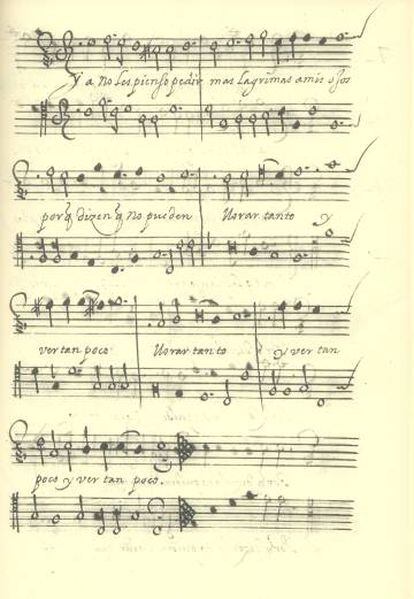 Ya no les pienso pedir mas lagrimas a mis ojos
porq̃ dizen q̃ no pueden llorar tanto y
ver tan poco llorar tanto y ver tan
poco y ver tan poco.